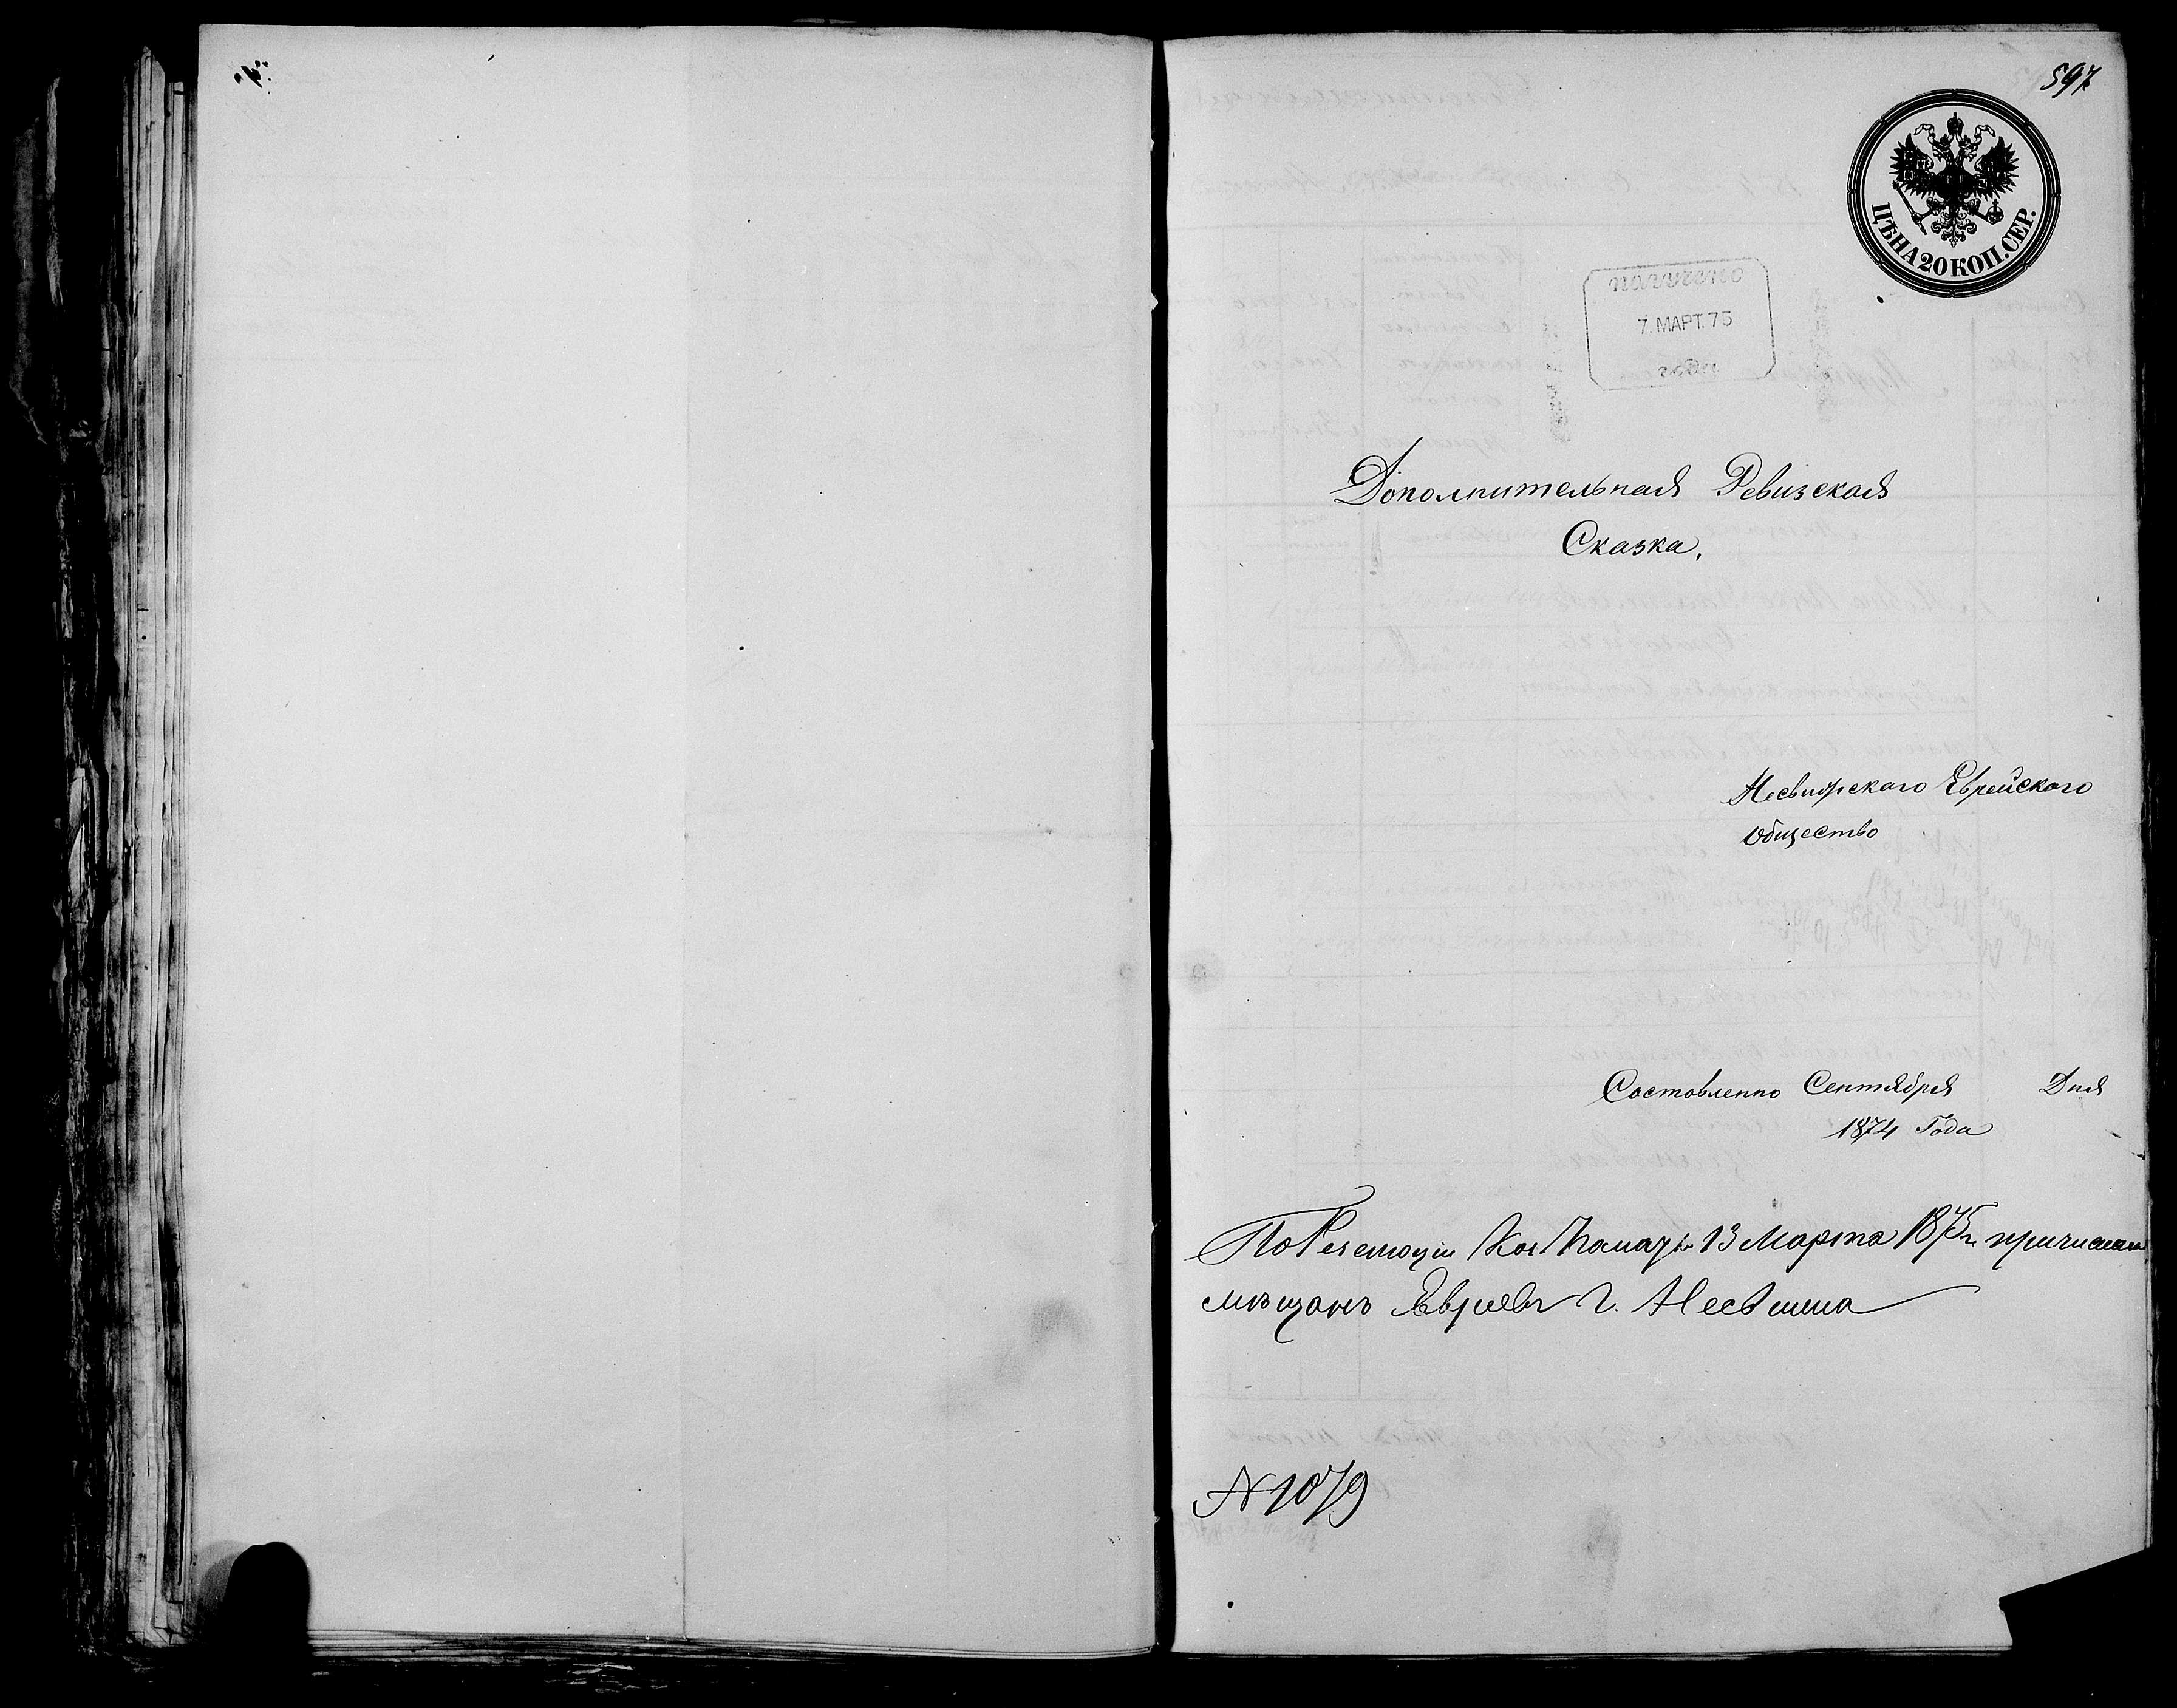 597
ЦѢНА 20 КОП. СЕР.
получено
7. МАРТ. 75
Дополнительная Ревизская
Сказка,
Несвижского Еврейского
Общество
Составленно Сентября Дня
1874 Года
По Резолюции Каз Палаты 13 Марта 1875 г. причислен
мѣщанъ Евреевъ г. Несвижа
N 1079